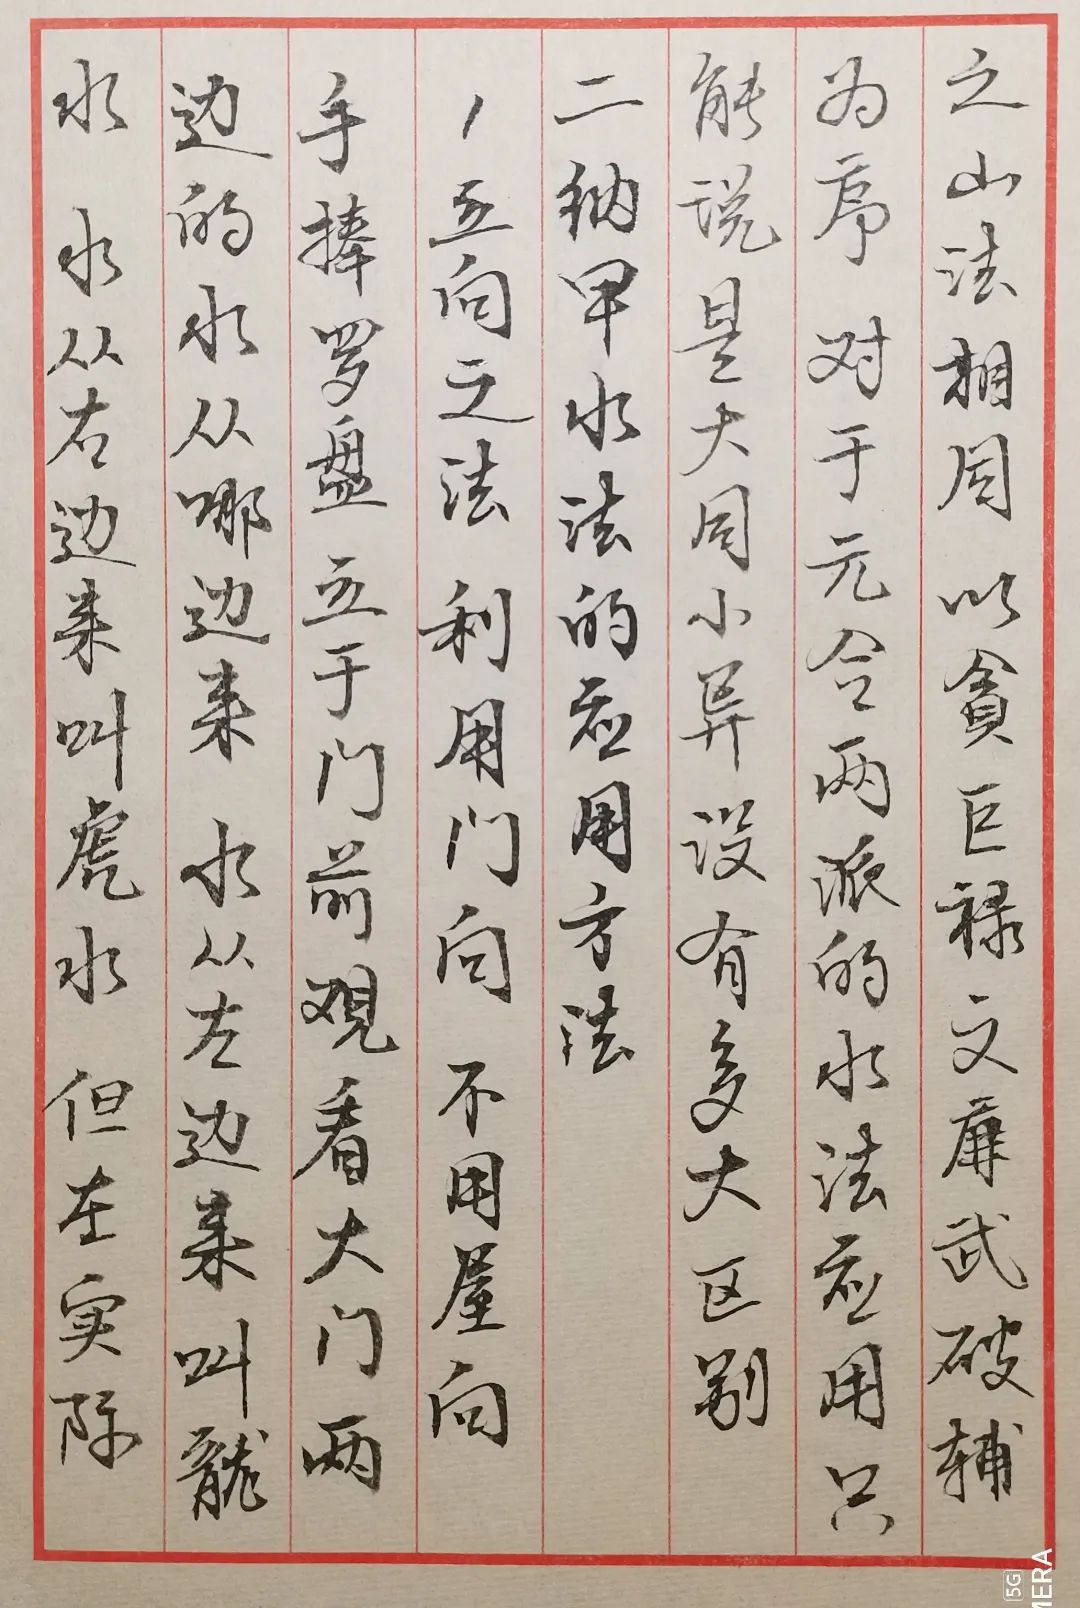 之山法相同 以贪巨禄文廉武破辅
为序 对于元合两派的水法应用只
能说是大同小异 没有多大区别
二纳甲水法的应用方法
1 立向之法 利用门向 不用屋向
手捧罗盘立于门前观看大门两
边的水从哪边来 水从左边来叫龍
水 水从右边来叫虎水 但在实际
5G
MERA